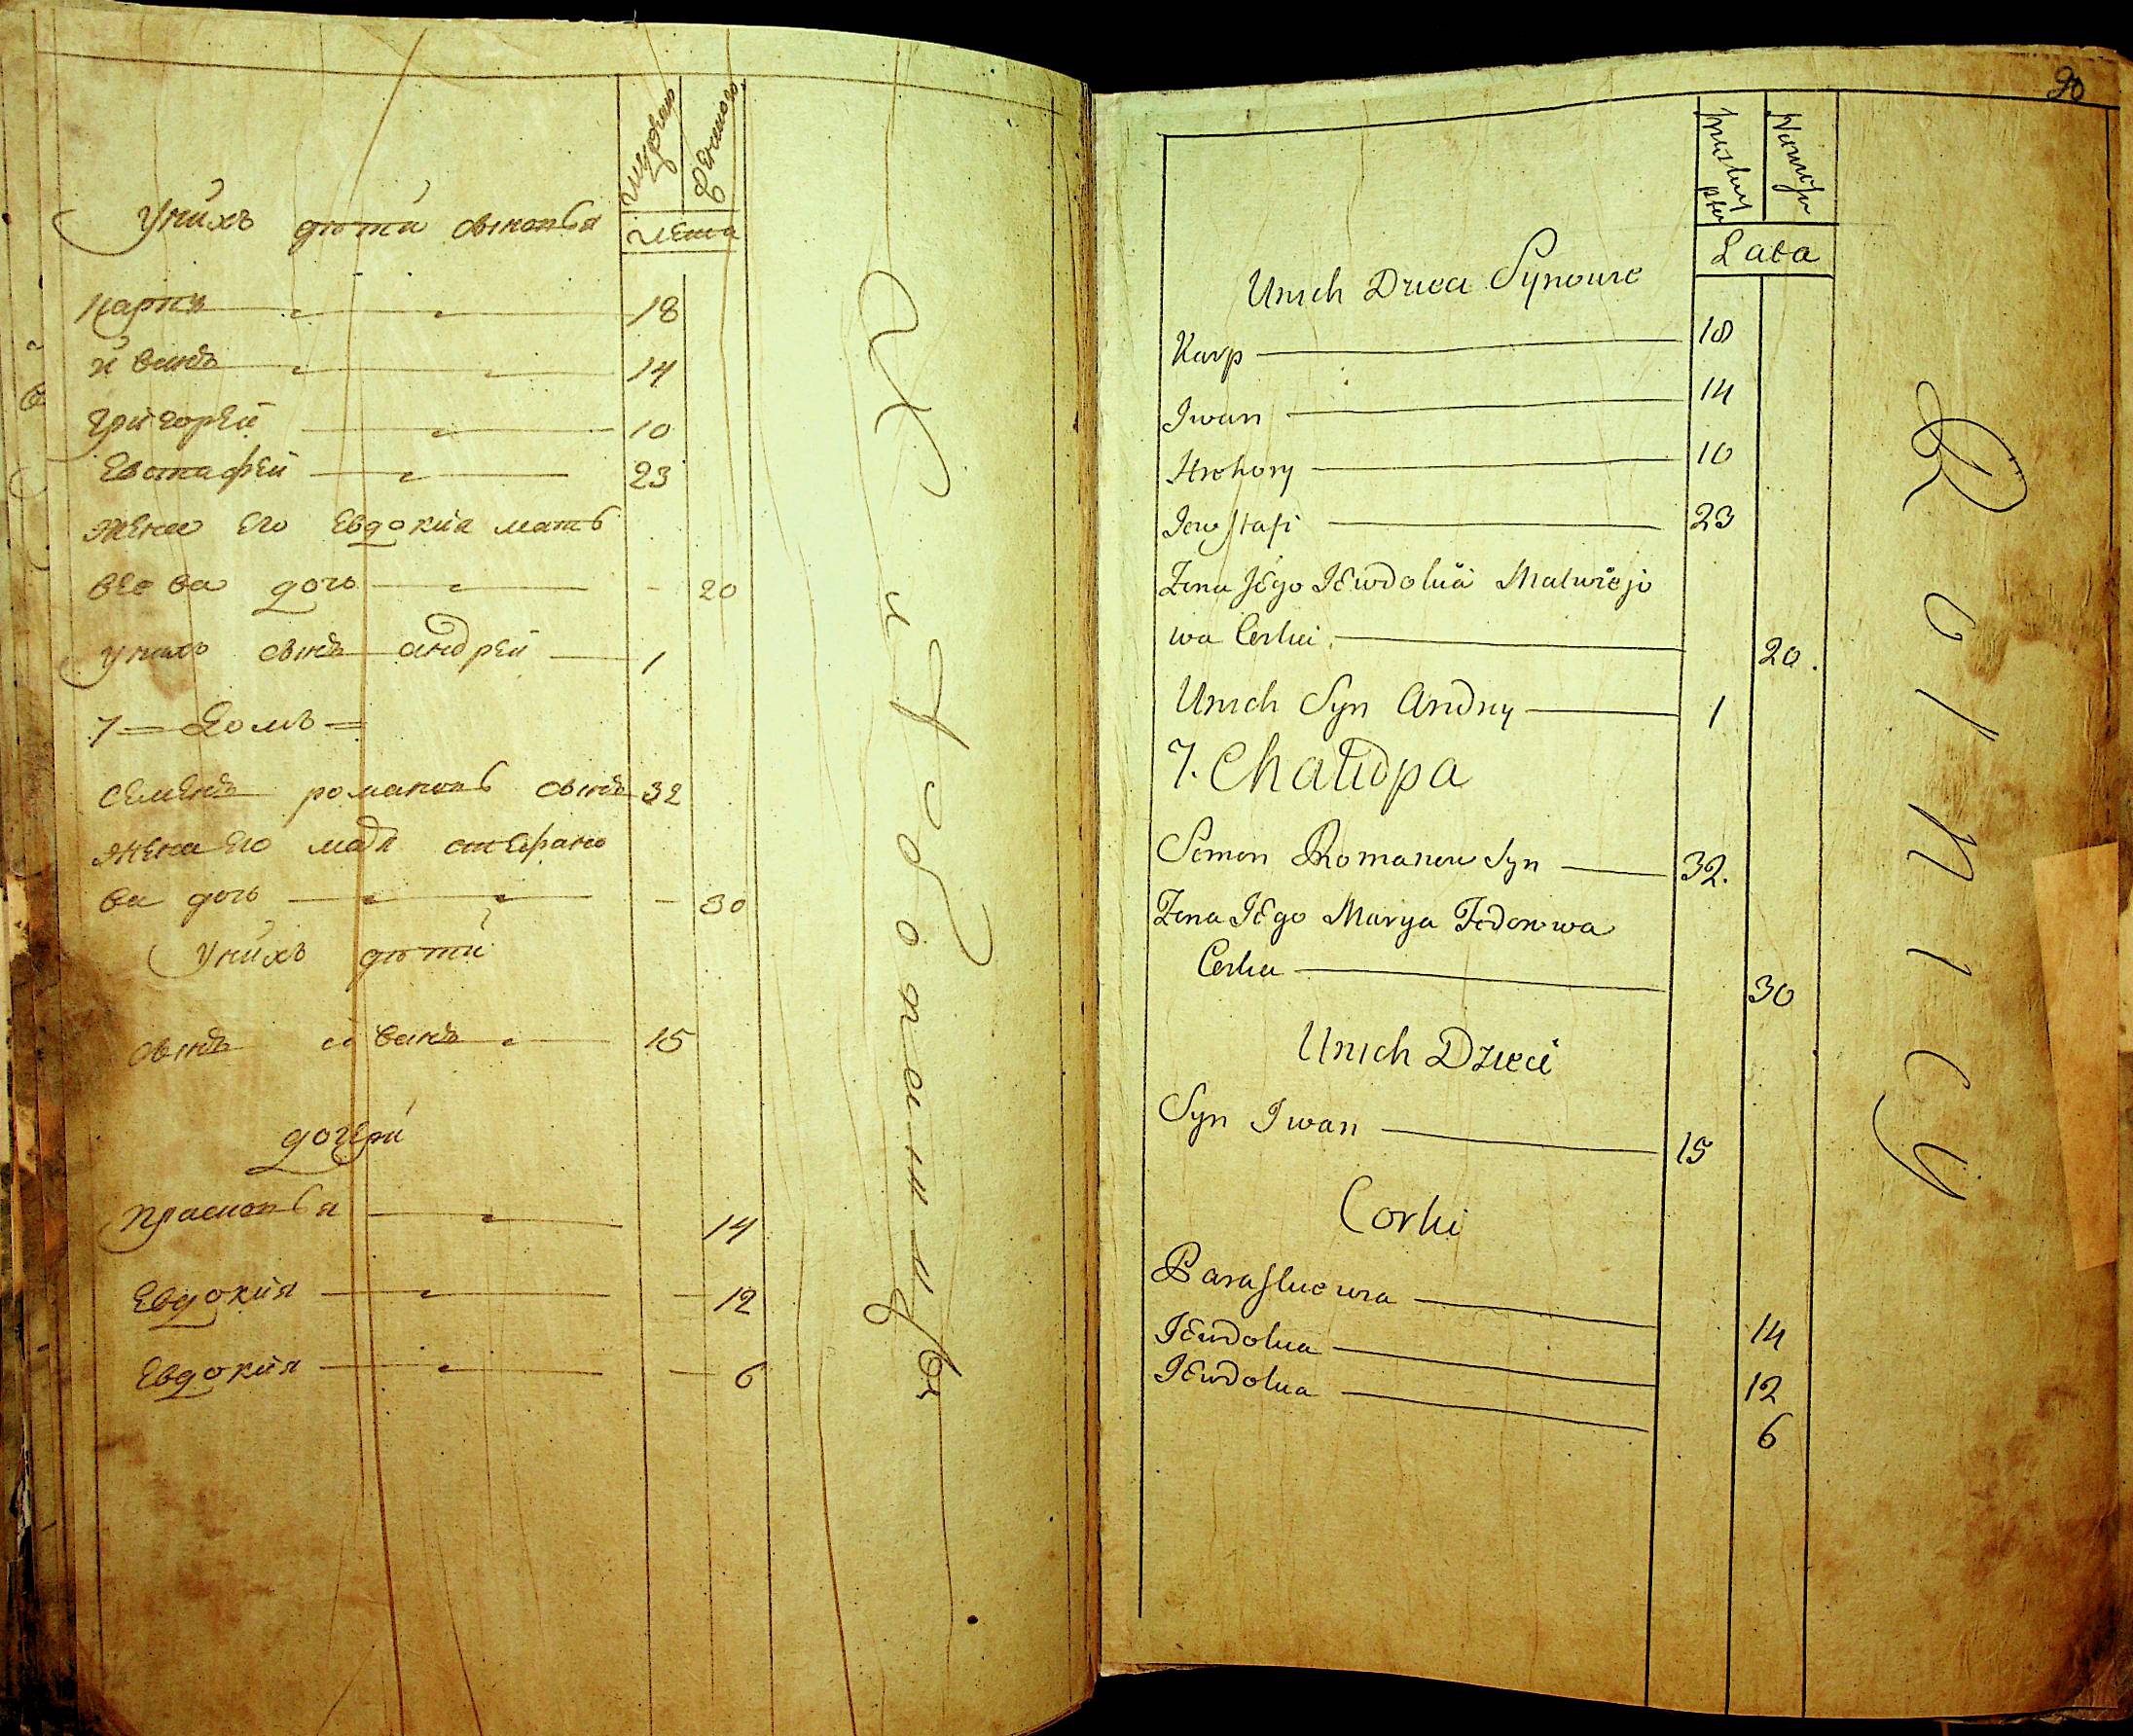 унихъ дѣти сыновья
лета
карпъ 18
иванъ 14
григорей 10
Евстафей 23
жена его Евдокия матв
Еева дочь 20
унихъ сынъ андрей 1
7 = Домъ =
семенъ романовъ сынъ 32
жена его стефано
ва дочь 30
унихъ дѣти
сынъ иванъ 15
дочери
прасковья 14
Евдокия 12
Евдокия 6
90
Lata
Unich Dzieci Synowie
Karp 18
Iwan 14
Hrehory 10
Jewstafi 23
Zona Jego Jewdokia Matwiejo
wa Corka 20.
Unich Syn Andrey 1
7. Chałupa
Semen Romanow Syn 32.
Zona Jego Marya Fedorowa
Corka 30
Unich Dzieci
Syn Iwan 15
Corki
Paraskiewia 14
Jewdokia 12
Jewdokia 6
Rolnicy